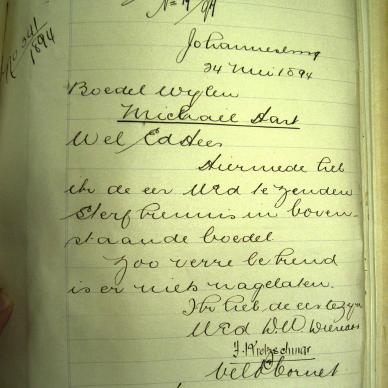 No 541/1894
No 19/94
Johannesburg
24 Mei 1894
Boedel Wylen
Michael Hart
Wel Ed Heer
Hiermede heb
ik de eer UEd te zenden
Sterfkennis in boven-
staande boedel
Zoo verre bekend
is er niets nagelaten.
Ik heb de eer te zyn
UEd DW Dienaar
Kretzschmar
Veld Cornet